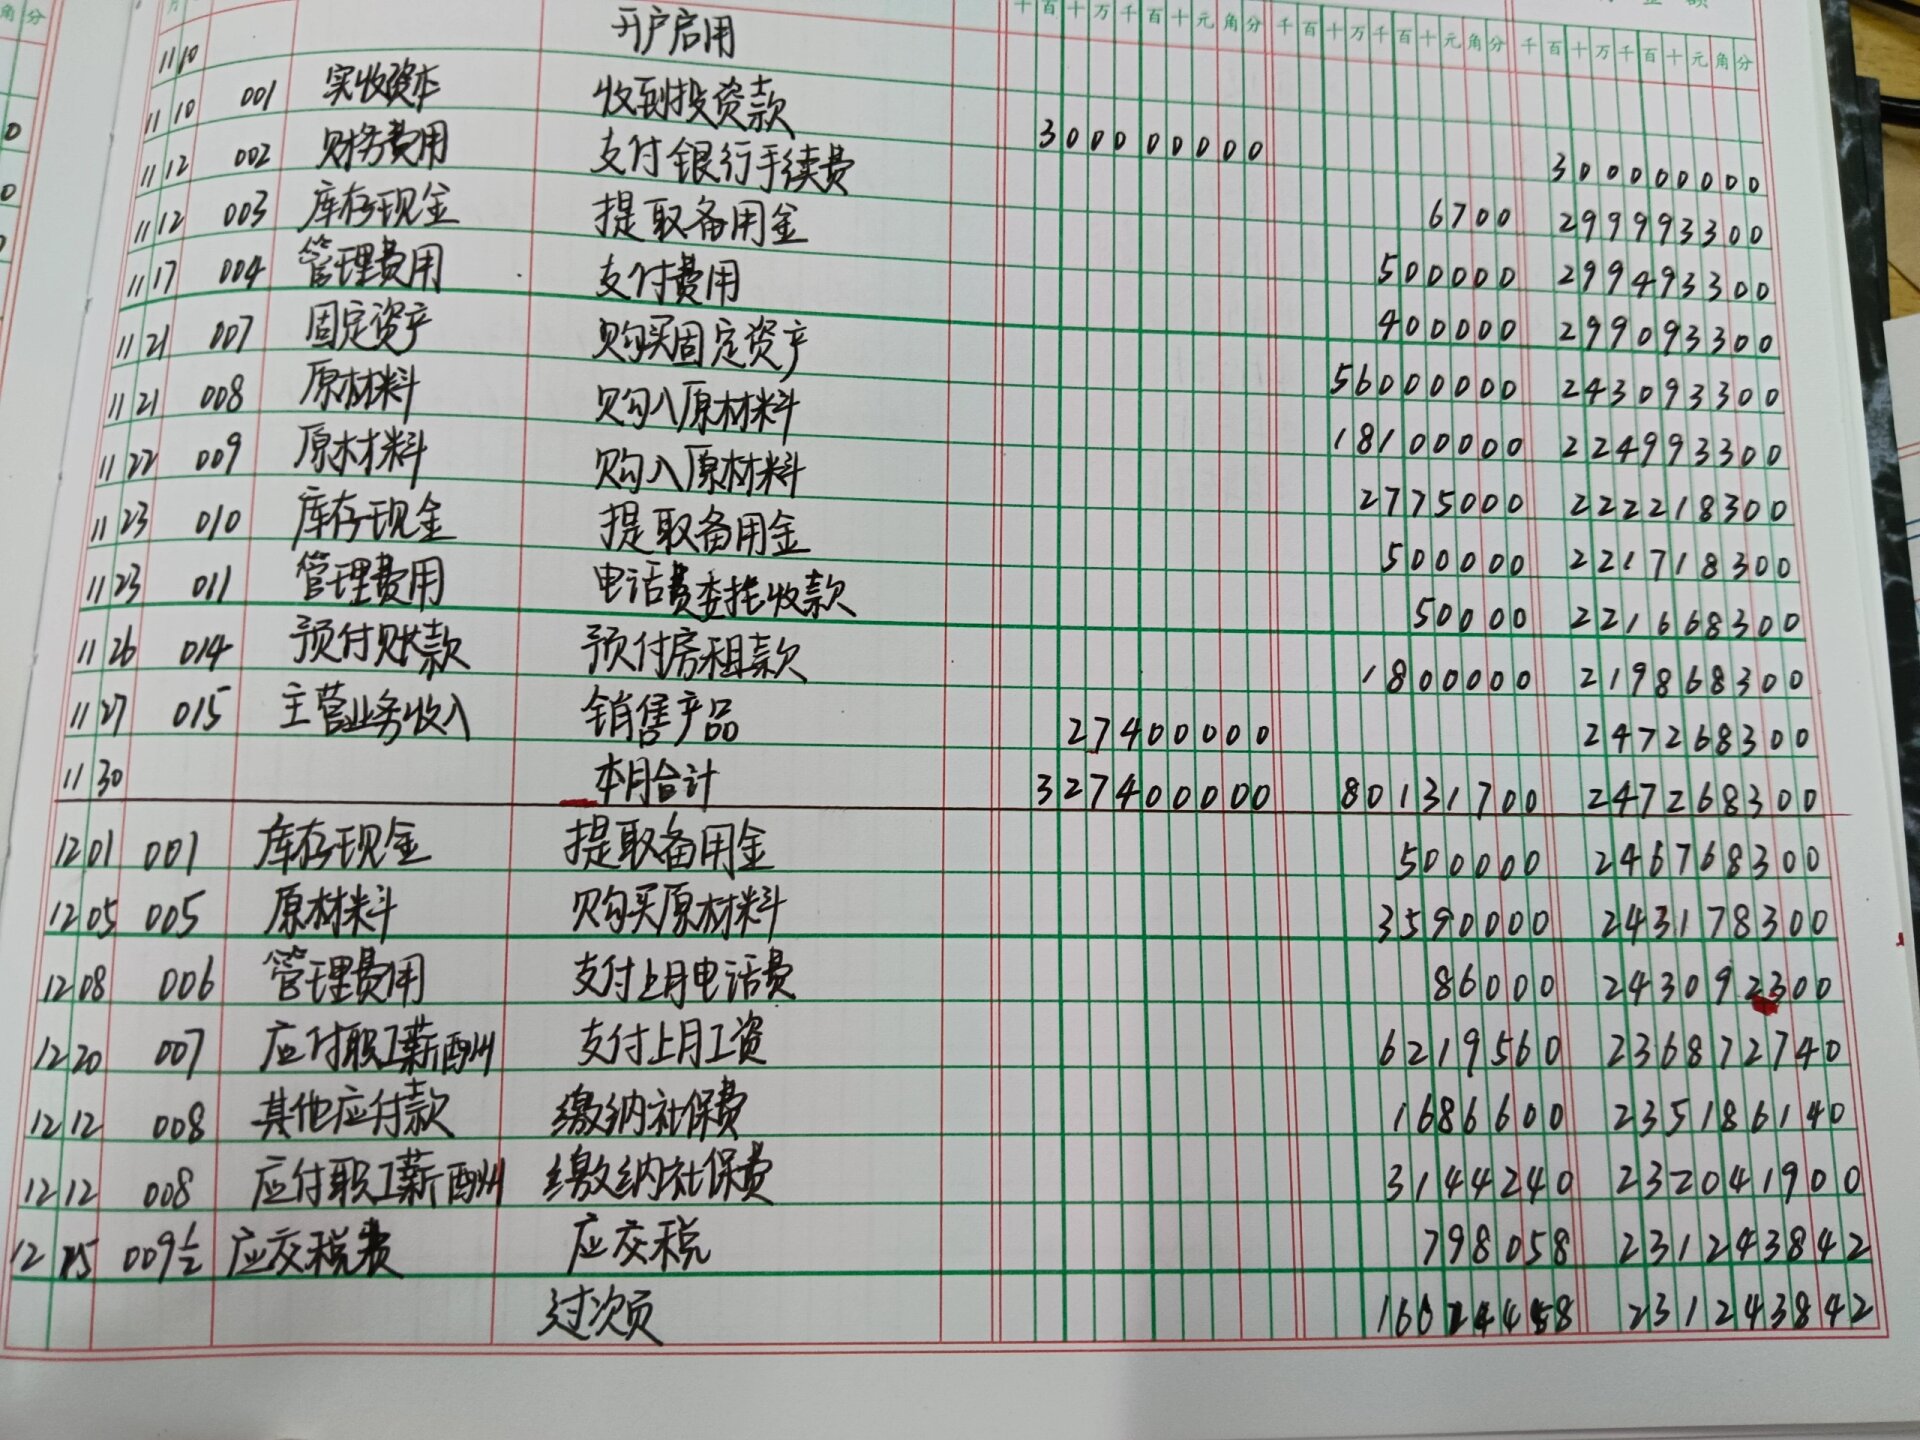 千百十万千百十元角分 千百十万千百十元角分 千百十万千百十元角分
11 10 开户启用
11 10 001 实收资本 收到投资款 300000000 300000000
11 12 002 财务费用 支付银行手续费 6700 299993300
11 12 003 库存现金 提取备用金 500000 299493300
11 17 004 管理费用 支付费用 400000 299093300
11 21 007 固定资产 购买固定资产 56000000 243093300
11 21 008 原材料 购入原材料 18100000 224993300
11 22 009 原材料 购入原材料 2775000 222218300
11 23 010 库存现金 提取备用金 500000 221718300
11 23 011 管理费用 电话费委托收款 50000 221668300
11 26 014 预付账款 预付房租款 1800000 219868300
11 27 015 主营业务收入 销售产品 27400000 247268300
11 30 本月合计 327400000 80131700 247268300
12 01 001 库存现金 提取备用金 500000 246768300
12 05 005 原材料 购买原材料 3590000 243178300
12 08 006 管理费用 支付上月电话费 86000 243092300
12 20 007 应付职工薪酬 支付上月工资 6219560 236872740
12 12 008 其他应付款 缴纳社保费 1686600 235186140
12 12 008 应付职工薪酬 缴纳社保费 3144240 232041900
12 15 009½ 应交税费 应交税 798058 231243842
过次页 16024458 231243842